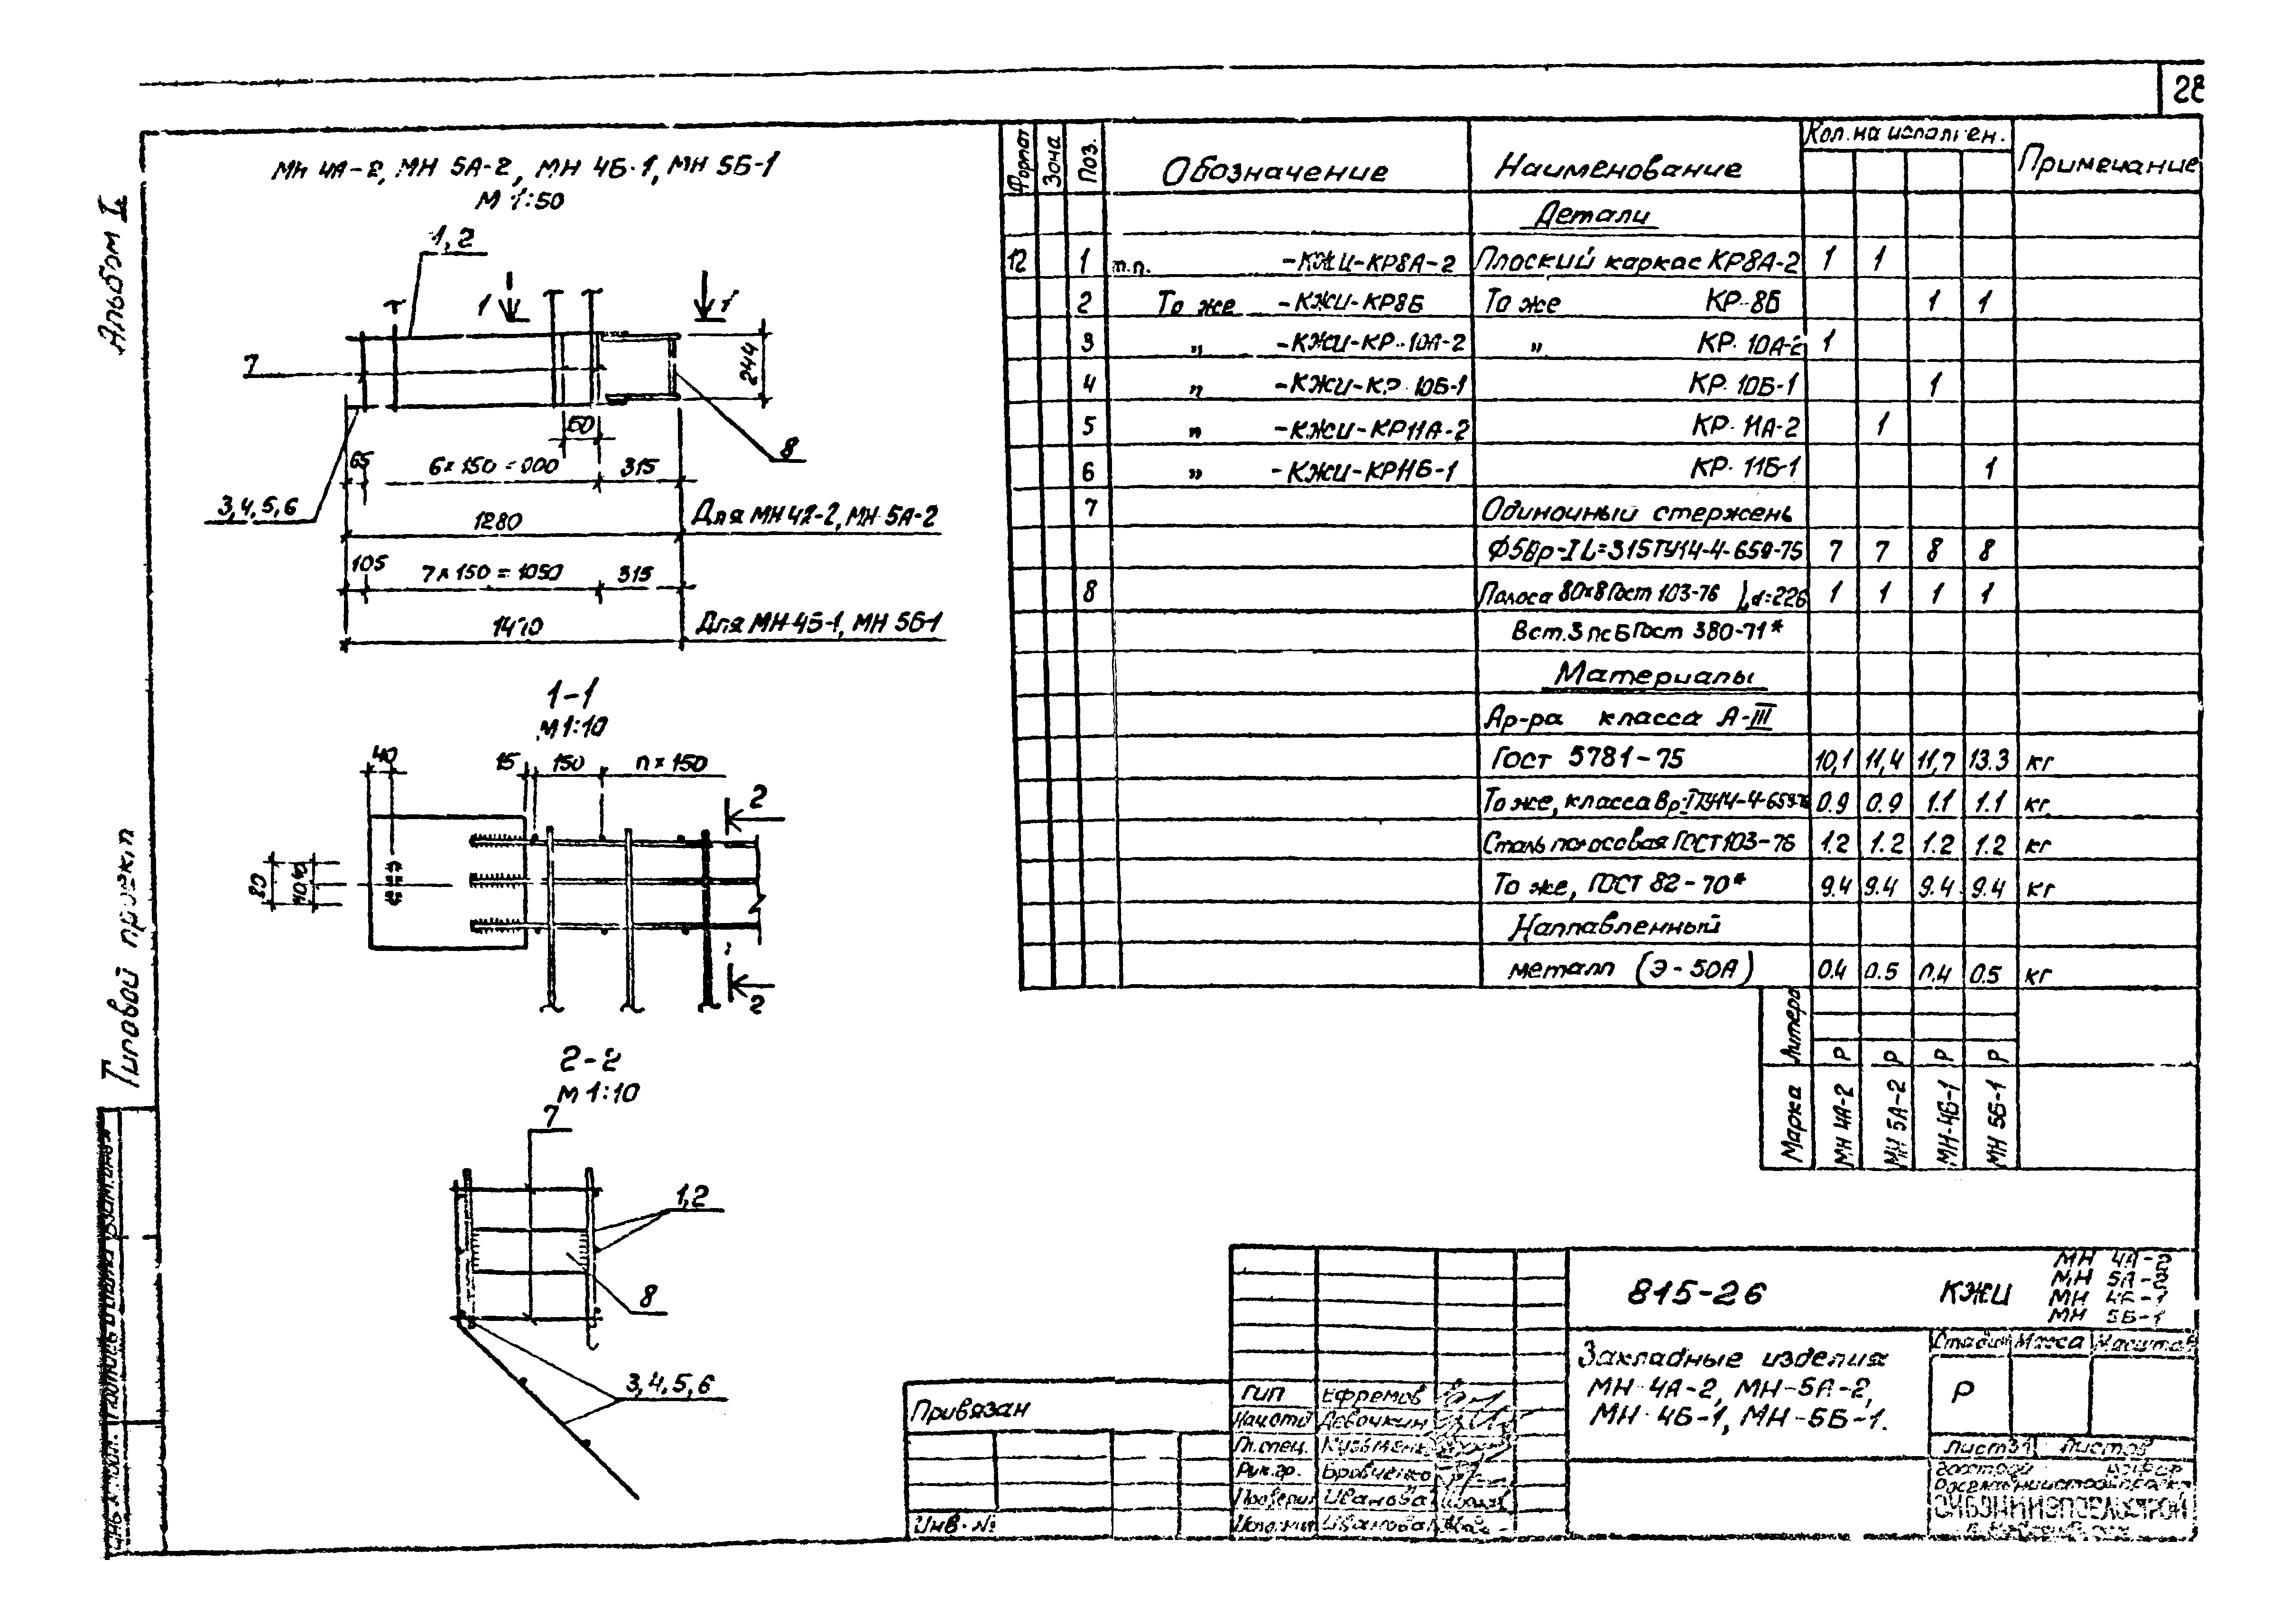 28
Альбом I
Типовой проект
МН 4А-2, МН 5А-2, МН 4Б-1, МН 5Б-1
М 1:50
1,2
1
1
7
244
60
8
65
6×150=900
315
3,4,5,6
1280
Для МН 4А-2, МН 5А-2
105
7×150=1050
315
1470
Для МН-4Б-1, МН 5Б-1
1-1
М 1:10
40
15
150
n×150
2
80
40 40
2
2-2
М 1:10
7
1,2
8
3,4,5,6
Формат Зона Поз. Обозначение Наименование Кол. на исполнен. Примечание
Детали
12 1 т.п. -КЖИ-КР8А-2 Плоский каркас КР8А-2 1 1
2 То же -КЖИ-КР8Б То же КР-8Б 1 1
3 „ -КЖИ-КР-10А-2 „ КР 10А-2 1
4 „ -КЖИ-КР 10Б-1 КР 10Б-1 1
5 „ -КЖИ-КР11А-2 КР-11А-2 1
6 „ -КЖИ-КР11Б-1 КР-11Б-1 1
7 Одиночный стержень
Ф5Вр-I L=315 ТУ14-4-659-75 7 7 8 8
8 Полоса 80×8 Гост 103-76 L=226 1 1 1 1
Вст.3пс6 Гост 380-71*
Материалы
Ар-ра класса А-III
Гост 5781-75 10,1 11,4 11,7 13.3 кг
То же, класса Вр-I ТУ14-4-659-75 0.9 0.9 1.1 1.1 кг.
Сталь полосовая ГОСТ 103-76 1.2 1.2 1.2 1.2 кг
То же, ГОСТ 82-70* 9.4 9.4 9.4 9.4 кг
Наплавленный
металл (Э-50А) 0.4 0.5 0.4 0.5 кг
Литера Р Р Р Р
Марка МН 4А-2 МН 5А-2 МН-4Б-1 МН 5Б-1
815-26 КЖИ
МН 4А-2
МН 5А-2
МН 4Б-1
МН 5Б-1
Закладные изделия
МН-4А-2, МН-5А-2,
МН-4Б-1, МН-5Б-1.
Стадия Масса Масштаб
Р
Лист 31 Листов
Привязан
Инв. №
ГИП Ефремов
Нач.отд Девочкин
Гл.спец.
Рук.гр. Бровченко
Проверил Иванова
Исполнил Иванова